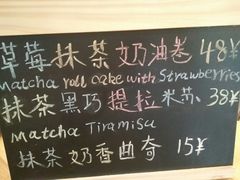 草莓抹茶奶油卷 48¥
matcha roll cake with Strawberries
抹茶黑巧提拉米苏 38¥
Matcha Tiramisu
抹茶奶香曲奇 15¥